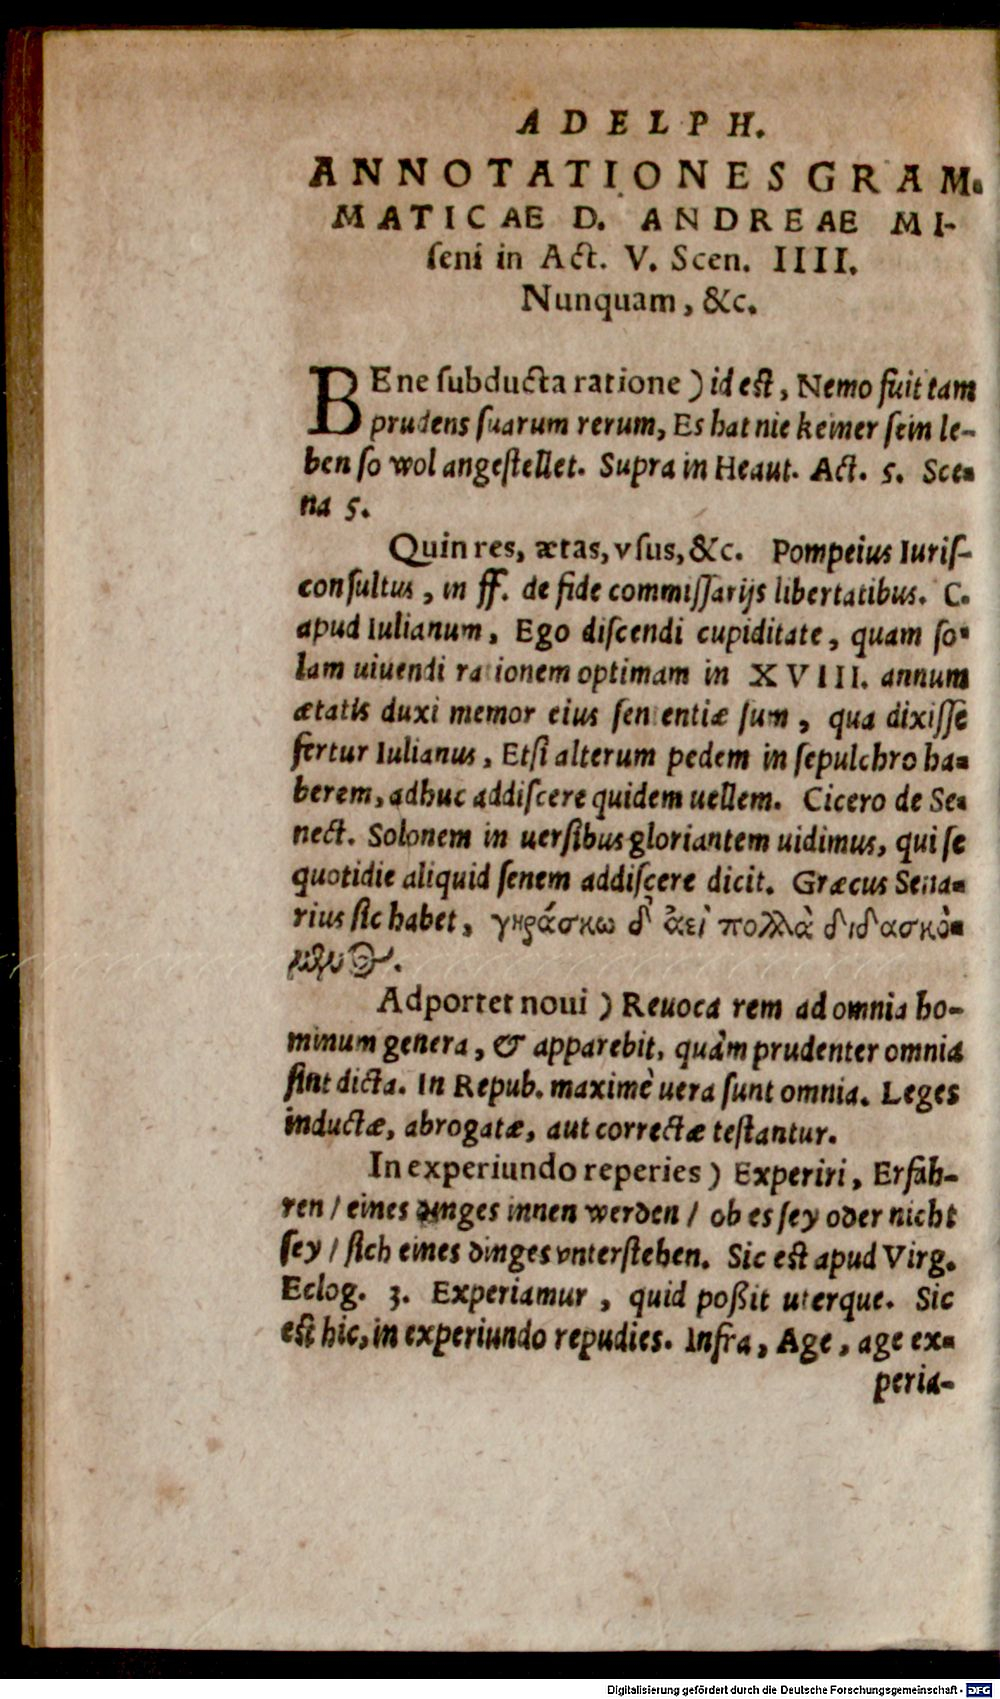 ADELPH.
ANNOTATIONES GRAM-
MATICAE D. ANDREAE MI-
ſeni in Act. V. Scen. IIII.
Nunquam, &c.
BEne ſubducta ratione) id eſt, Nemo fuit tam
prudens ſuarum rerum, Es hat nie keiner ſein le-
ben ſo wol angeſtellet. Supra in Heaut. Act. 5. Sce-
na 5.
Quin res, ætas, vſus, &c. Pompeius Iuriſ-
conſultus, in ff. de fide commiſſarijs libertatibus. C.
apud Iulianum, Ego diſcendi cupiditate, quam ſo-
lam uiuendi rationem optimam in XVIII. annum
ætatis duxi memor eius ſententiæ ſum, qua dixiſſe
fertur Iulianus, Etſi alterum pedem in ſepulchro ha-
berem, adhuc addiſcere quidem uellem. Cicero de Se-
nect. Solonem in uerſibus gloriantem uidimus, qui ſe
quotidie aliquid ſenem addiſcere dicit. Græcus Sena-
rius ſic habet, γηράσκω δ' ἀεὶ πολλὰ διδασκό-
μενος.
Adportet noui) Reuoca rem ad omnia ho-
minum genera, & apparebit, quàm prudenter omnia
ſint dicta. In Repub. maximè uera ſunt omnia. Leges
inductæ, abrogatæ, aut correctæ teſtantur.
In experiundo reperies) Experiri, Erfäh-
ren / eines dinges innen werden / ob es ſey oder nicht
ſey / ſich eines dinges vnterſtehen. Sic eſt apud Virg.
Eclog. 3. Experiamur, quid poßit uterque. Sic
eſt hic, in experiundo repudies. Infra, Age, age ex-
peria-
Digitalisierung gefördert durch die Deutsche Forschungsgemeinschaft - DFG